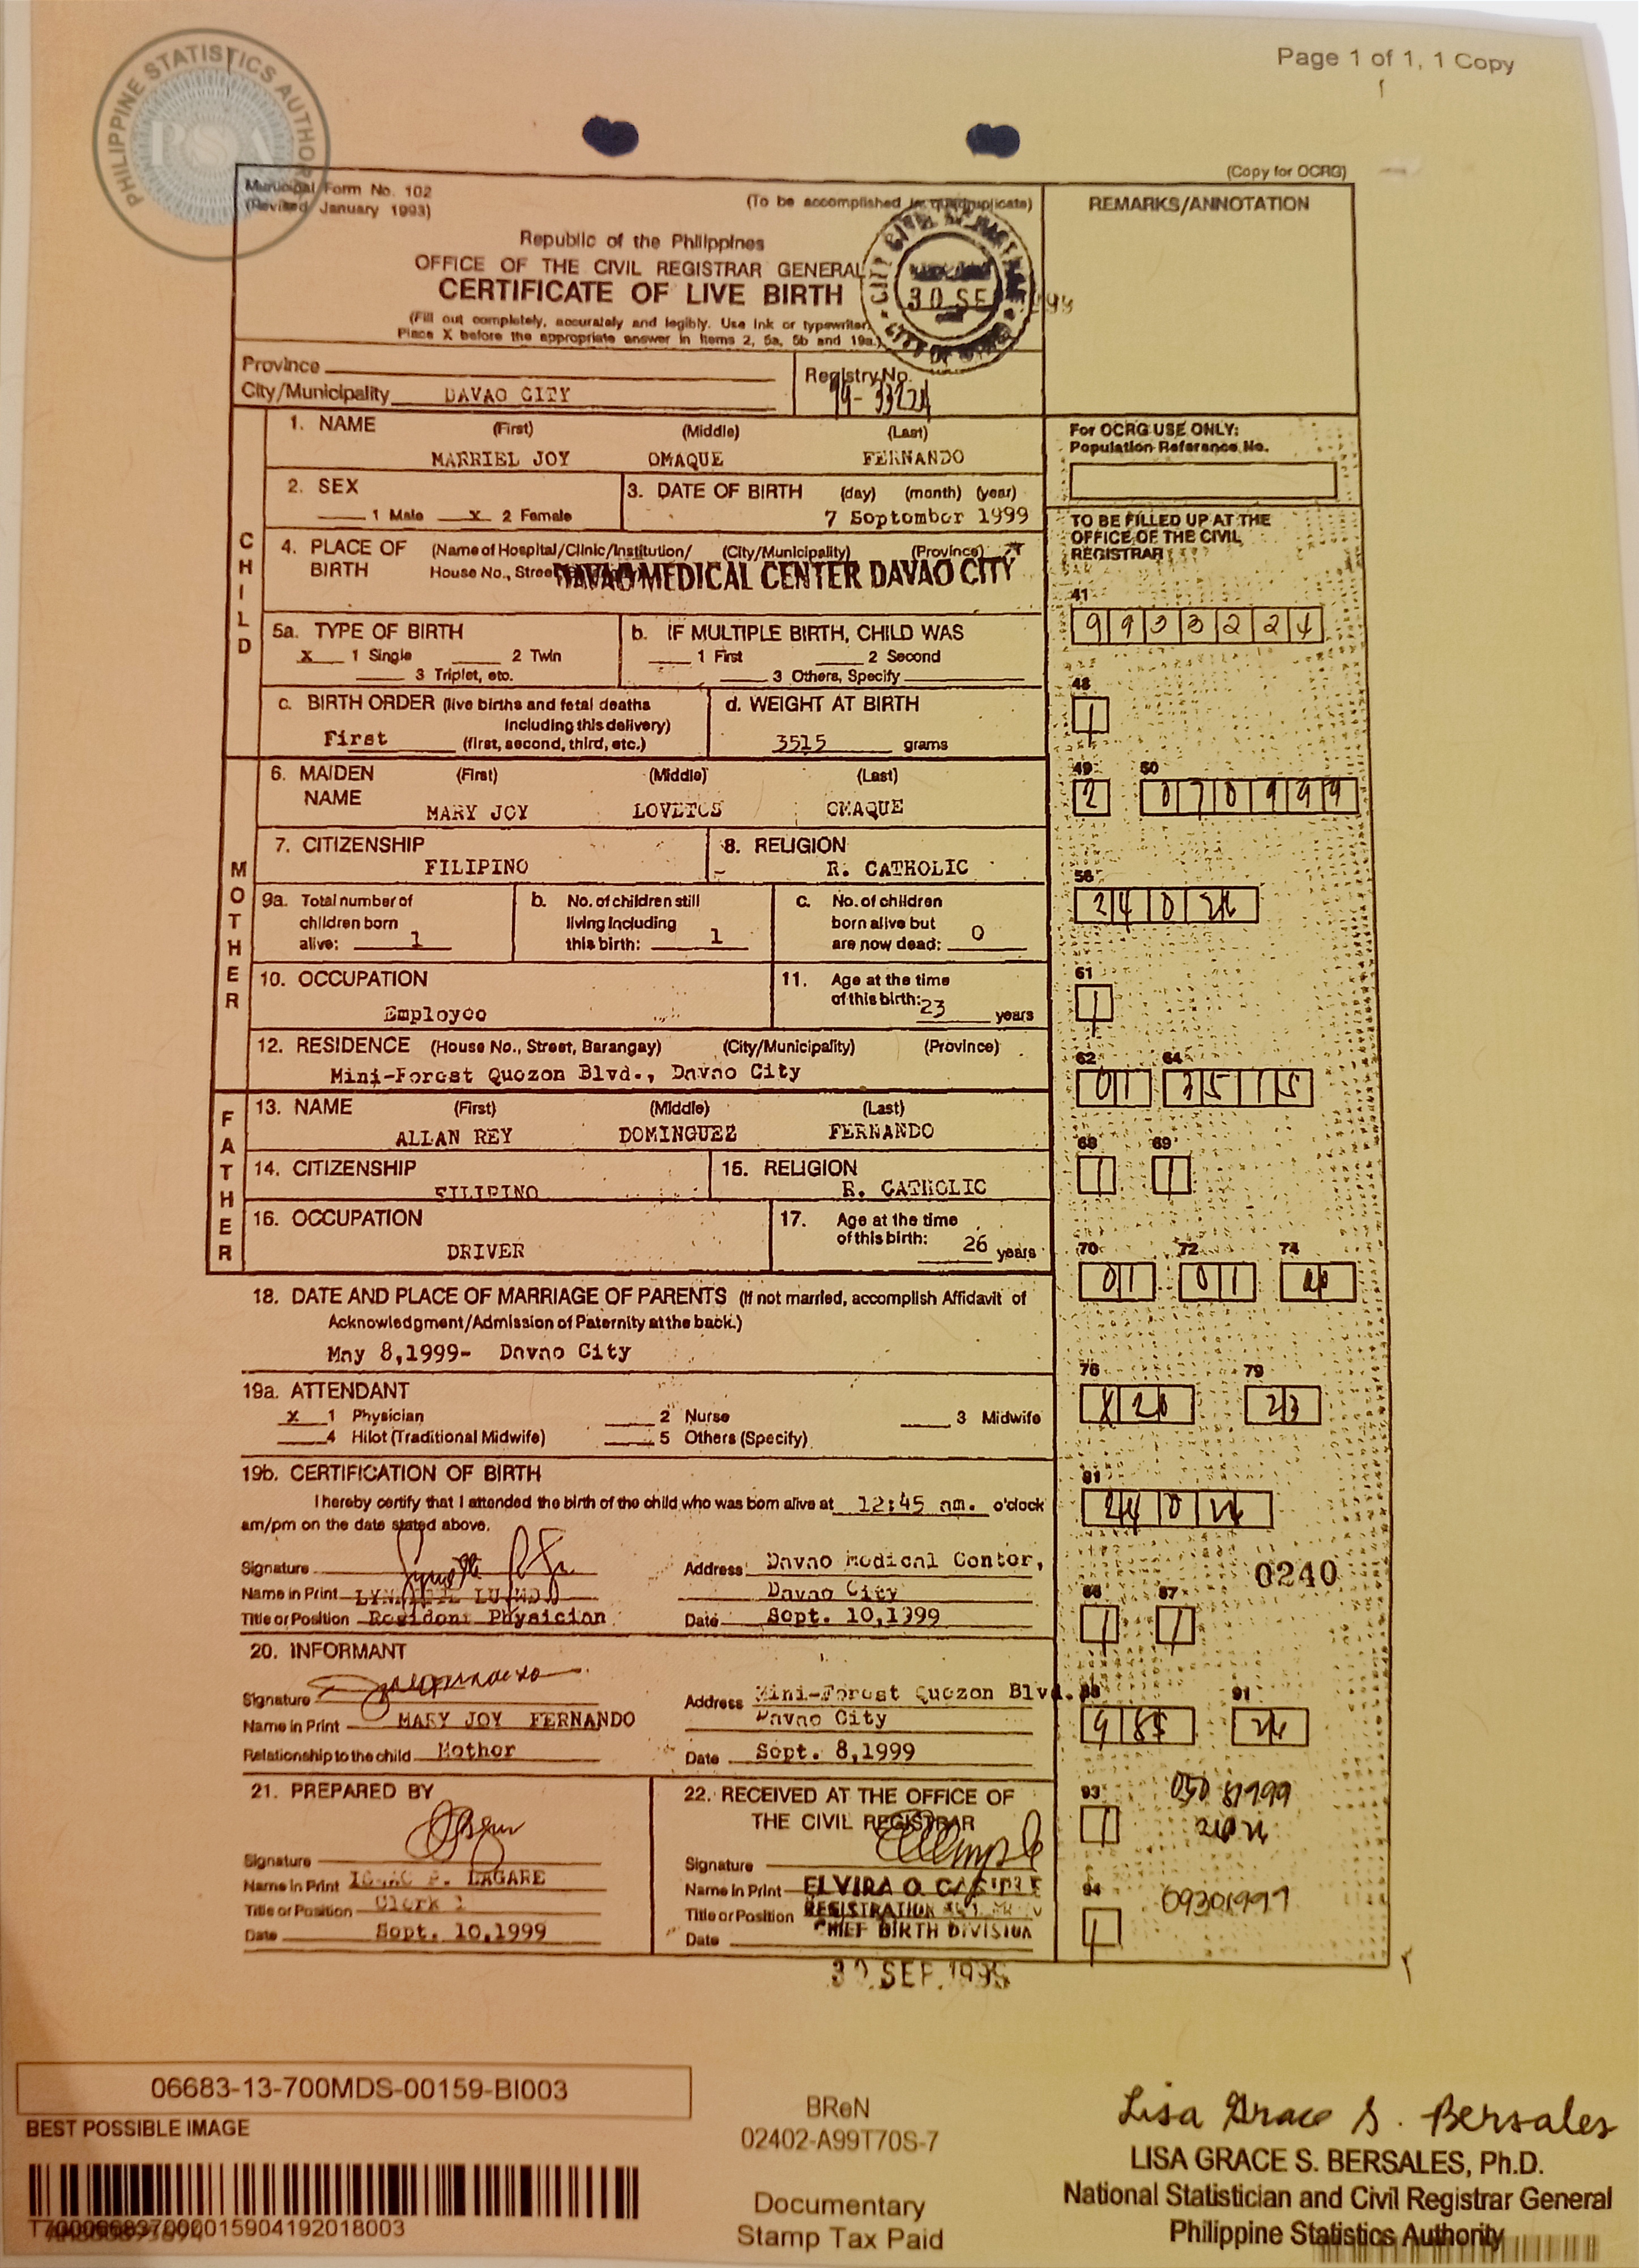 PHILIPPINE STATISTICS AUTHORITY
PSA
Page 1 of 1, 1 Copy
(Copy for OCRG)
Municipal Form No. 102
(Revised January 1993)
(To be accomplished in quadruplicate)
REMARKS/ANNOTATION
Republic of the Philippines
OFFICE OF THE CIVIL REGISTRAR GENERAL
CERTIFICATE OF LIVE BIRTH
(Fill out completely, accurately and legibly. Use ink or typewriter.
Place X before the appropriate answer in items 2, 5a, 5b and 19a.)
Province
Registry No.
City/Municipality DAVAO CITY
CHILD
1. NAME (First) (Middle) (Last)
MARRIEL JOY OMAQUE FERNANDO
For OCRG USE ONLY:
Population Reference No.
2. SEX
1 Male X 2 Female
3. DATE OF BIRTH (day) (month) (year)
7 September 1999
TO BE FILLED UP AT THE
OFFICE OF THE CIVIL
REGISTRAR
4. PLACE OF BIRTH (Name of Hospital/Clinic/Institution/ (City/Municipality) (Province)
House No., Street
DAVAO MEDICAL CENTER DAVAO CITY
41
5a. TYPE OF BIRTH
X 1 Single 2 Twin
3 Triplet, etc.
b. IF MULTIPLE BIRTH, CHILD WAS
1 First 2 Second
3 Others, Specify
48
c. BIRTH ORDER (live births and fetal deaths
including this delivery)
First (first, second, third, etc.)
d. WEIGHT AT BIRTH
3515 grams
MOTHER
6. MAIDEN NAME (First) (Middle) (Last)
MARY JOY LOVETOS OMAQUE
49 50
2 070999
7. CITIZENSHIP
FILIPINO
8. RELIGION
R. CATHOLIC
56
9a. Total number of
children born
alive: 1
b. No. of children still
living including
this birth: 1
c. No. of children
born alive but
are now dead: 0
10. OCCUPATION
Employee
11. Age at the time
of this birth: 23 years
61
1
12. RESIDENCE (House No., Street, Barangay) (City/Municipality) (Province)
Mini-Forest Quezon Blvd., Davao City
62 64
01 3515
FATHER
13. NAME (First) (Middle) (Last)
ALLAN REY DOMINGUEZ FERNANDO
68 69
1 1
14. CITIZENSHIP
FILIPINO
15. RELIGION
R. CATHOLIC
16. OCCUPATION
DRIVER
17. Age at the time
of this birth: 26 years
70 72 74
01 01
18. DATE AND PLACE OF MARRIAGE OF PARENTS (If not married, accomplish Affidavit of
Acknowledgment/Admission of Paternity at the back.)
May 8,1999- Davao City
76 79
23
19a. ATTENDANT
X 1 Physician 2 Nurse 3 Midwife
4 Hilot (Traditional Midwife) 5 Others (Specify)
19b. CERTIFICATION OF BIRTH
I hereby certify that I attended the birth of the child who was born alive at 12:45 am. o'clock
am/pm on the date stated above.
81
Signature
Address Davao Medical Center,
Davao City
0240
Name in Print
Title or Position Resident Physician
Date Sept. 10,1999
86 87
1 1
20. INFORMANT
Signature
Address Mini-Forest Quezon Blvd.
Davao City
91
Name in Print MARY JOY FERNANDO
Relationship to the child Mother
Date Sept. 8,1999
21. PREPARED BY
22. RECEIVED AT THE OFFICE OF
THE CIVIL REGISTRAR
93
1
Signature
Name in Print LAGARE
Title or Position Clerk I
Date Sept. 10,1999
Signature
Name in Print ELVIRA O.
Title or Position REGISTRATION
CHIEF BIRTH DIVISION
Date
94
1
09301999
30 SEP 1999
06683-13-700MDS-00159-BI003
BEST POSSIBLE IMAGE
BReN
02402-A99T70S-7
Documentary
Stamp Tax Paid
Lisa Grace S. Bersales
LISA GRACE S. BERSALES, Ph.D.
National Statistician and Civil Registrar General
Philippine Statistics Authority